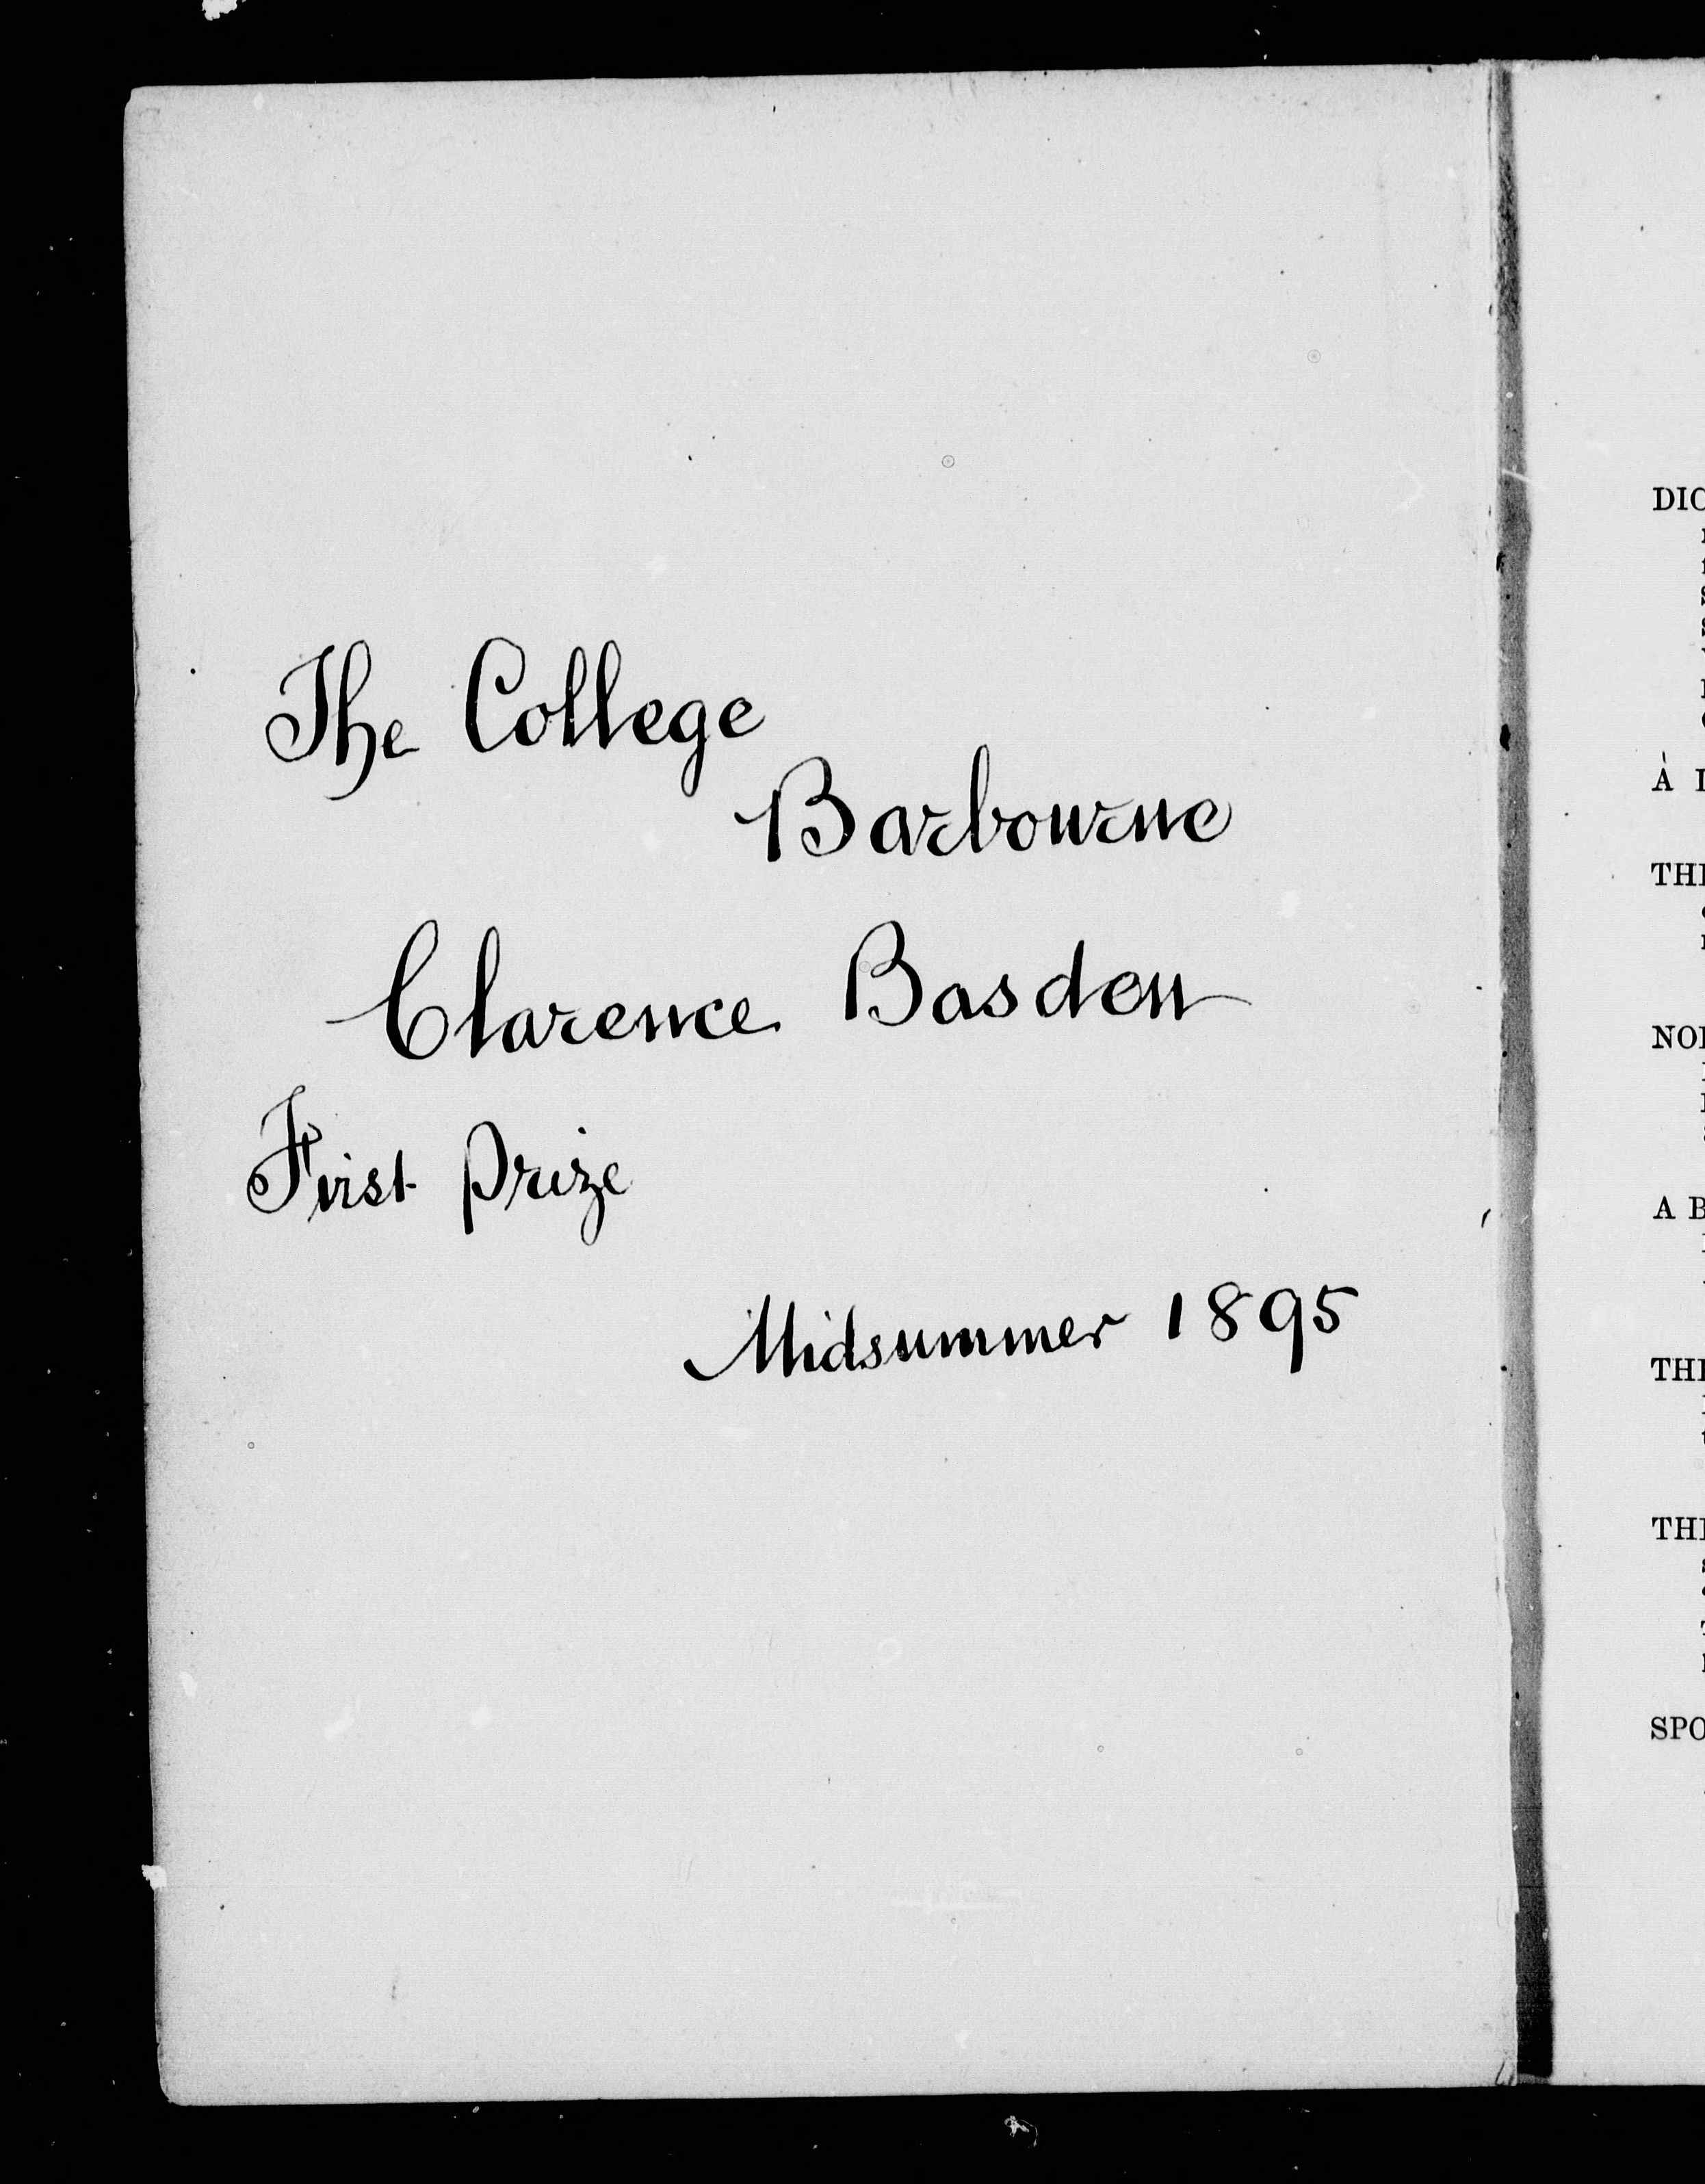 The College
Barbourne
Clarence Basden
First Prize
Midsummer 1895
DIC
À
THE
NO
A B
THE
THE
SPO